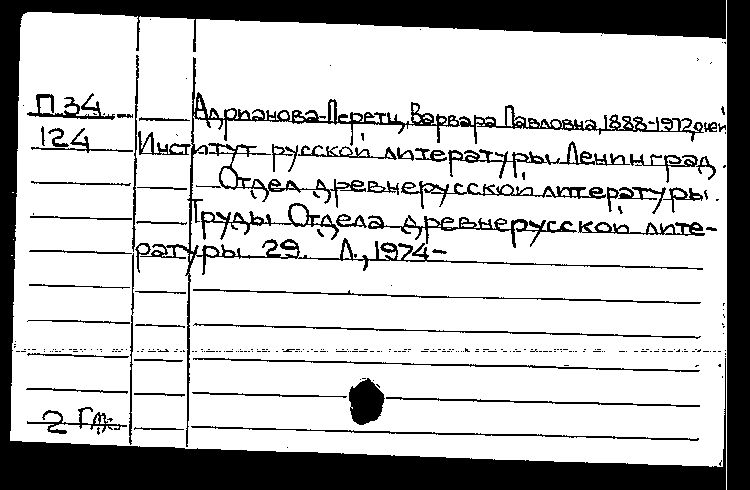 П34 Адрианова-Перетц, Варвара Павловна, 1888-1972,
124 Институт русской литературы. Ленинград.
Отдел древнерусской литературы.
Труды Отдела древнерусской лите-
ратуры. 29. Л., 1974-
2